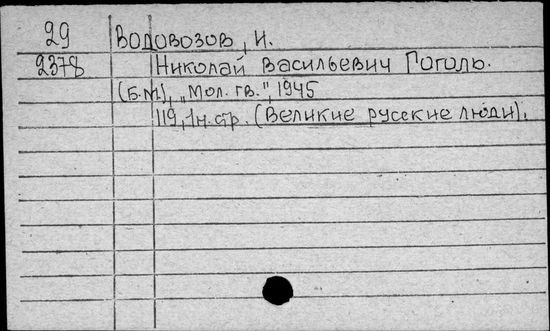 29 Водовозов, И.
2378 Николай Васильевич Гоголь.
(Б.М), „Мол. гв.", 1945
119, 1н. стр. (Великие русские люди).